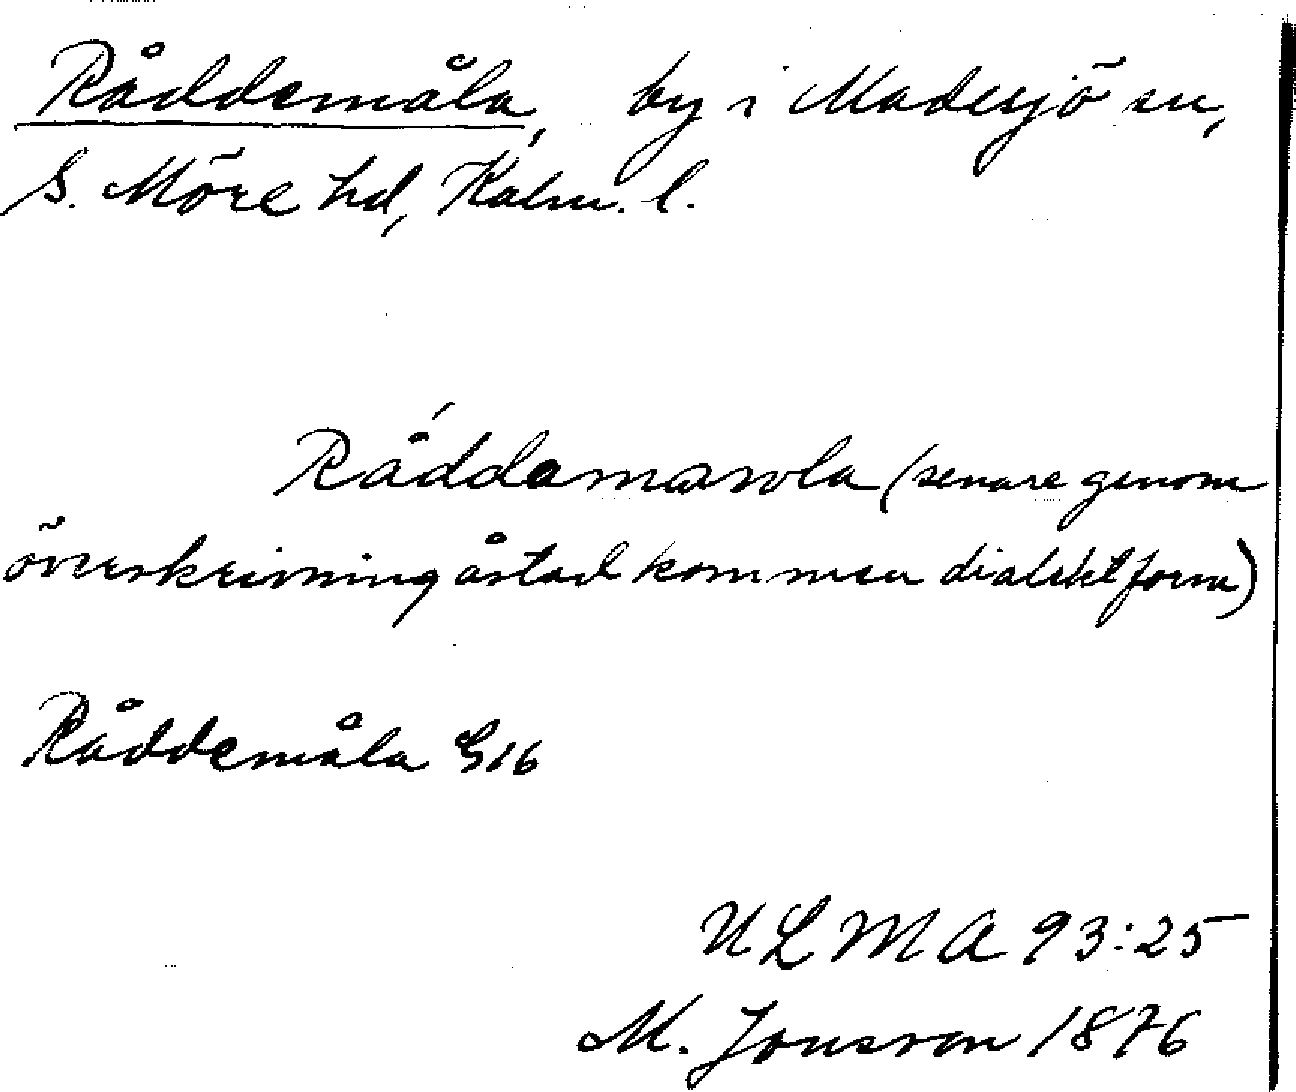 Råddemåla, by i Madesjö sn,
S. Möre hd, Kalm. l.
Rǻddamawla (senare genom
överskrivning åstadkommen dialektform)
Råddemåla G16
ULMA 93:25
M. Jonsson 1876